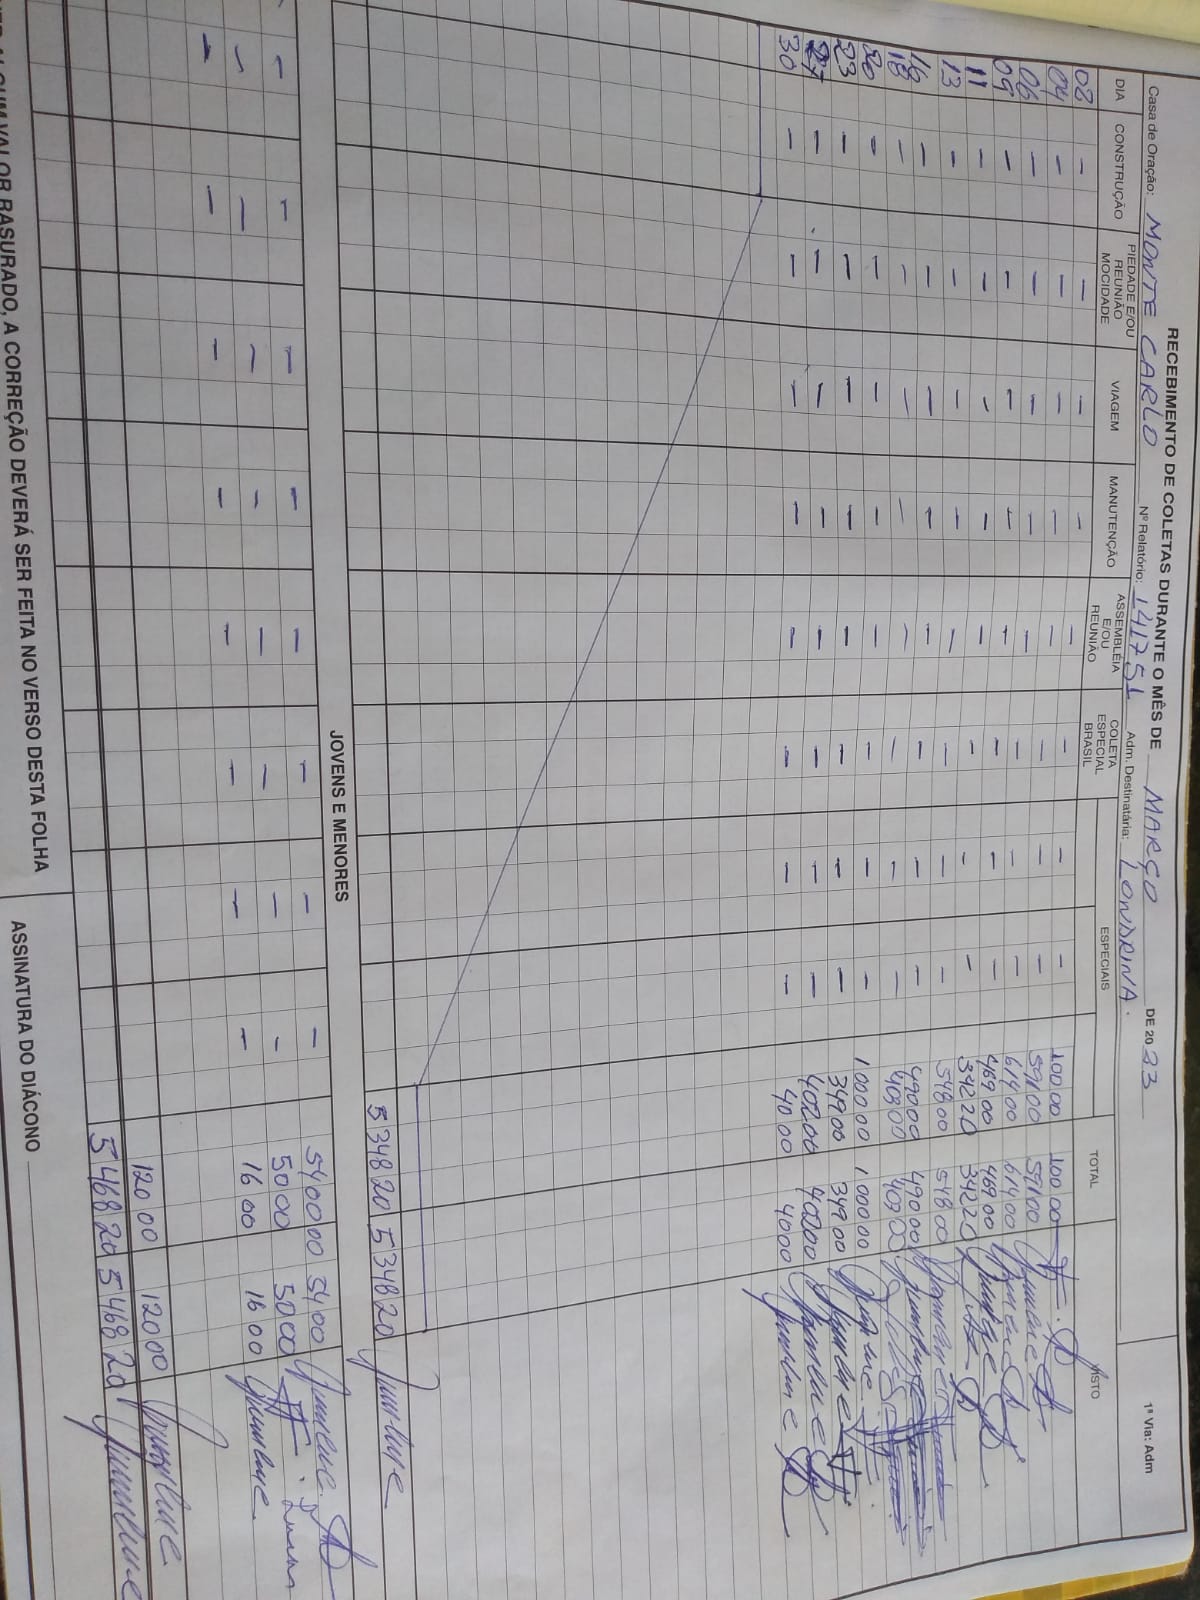 RECEBIMENTO DE COLETAS DURANTE O MÊS DE MARÇO DE 2023
1ª Via: Adm
Casa de Oração: MONTE CARLO Nº Relatório: 141751 Adm. Destinatária: LONDRINA.
DIA CONSTRUÇÃO PIEDADE E/OU REUNIÃO MOCIDADE VIAGEM MANUTENÇÃO ASSEMBLÉIA E/OU REUNIÃO COLETA ESPECIAL BRASIL ESPECIAIS TOTAL VISTO
02 — — — — — — — — 100 00 100 00
04 — — — — — — — — 591 00 591 00
06 — — — — — — — — 614 00 614 00
09 — — — — — — — — 469 00 469 00
11 — — — — — — — — 342 20 342 20
13 — — — — — — — — 548 00 548 00
16 — — — — — — — — 490 00 490 00
18 — — — — — — — — 403 00 403 00
20 — — — — — — — — 1 000 00 1 000 00
23 — — — — — — — — 349 00 349 00
27 — — — — — — — — 402 00 402 00
30 — — — — — — — — 40 00 40 00
5 348 20 5 348 20
JOVENS E MENORES
— — — — — — — — 54 00 00 54 00
— — — — — — — — 50 00 50 00 Lucas
— — — — — — — — 16 00 16 00
120 00 120 00
5 468 20 5 468 20
ALGUM VALOR RASURADO, A CORREÇÃO DEVERÁ SER FEITA NO VERSO DESTA FOLHA
ASSINATURA DO DIÁCONO